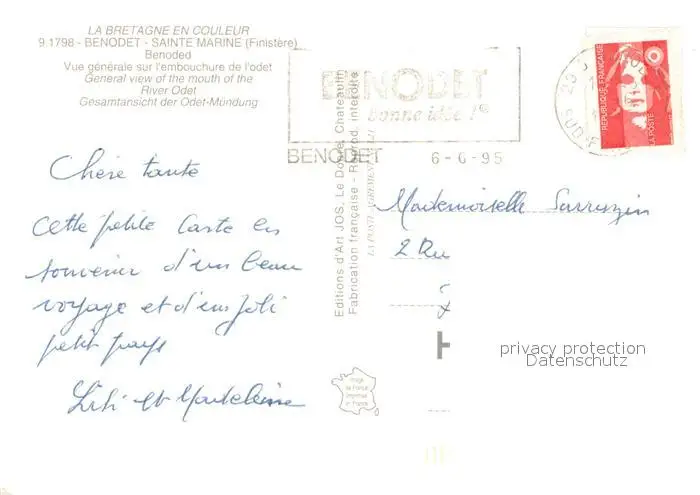 LA BRETAGNE EN COULEUR
9.1798 - BENODET - SAINTE MARINE (Finistère)
Benoded
Vue générale sur l'embouchure de l'odet
General view of the mouth of the
River Odet
Gesamtansicht der Odet-Mündung
BENODET
bonne idée !
BENODET 6-6-95
REPUBLIQUE FRANÇAISE
LA POSTE
Chère tante
cette petite carte en
souvenir d'un beau
voyage et d'un joli
petit pays
Lili et Madeleine
Editions d'Art JOS, Le Doaré, Chateaulin
Fabrication française - Reprod. interdite
Mademoiselle Sarrazin
2 Ru
Image
de France
imprimée
en France
privacy protection
Datenschutz